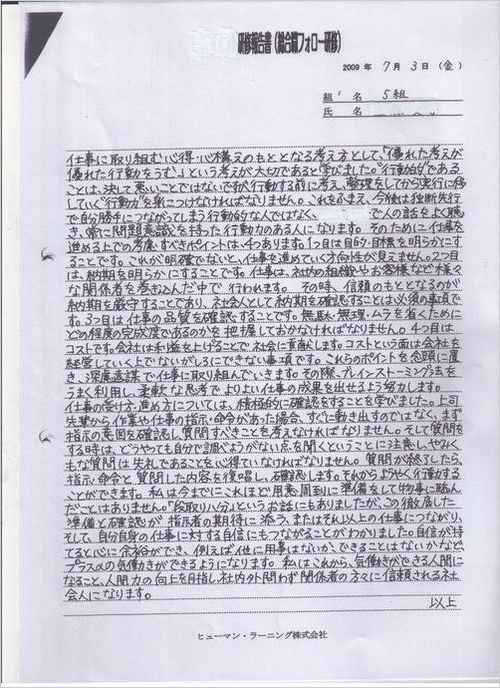 研修報告書(総合職フォロー研修)
2009 年 7 月 3 日 (金)
組 名 5組
氏 名
仕事に取り組む心得・心構えのもととなる考え方として、「優れた考えが
優れた行動をうむ」という考えが大切であると学びました。"行動的"である
ことは、決して悪いことではないですが行動する前に考え、整理をしてから実行に移
していく"行動力"を身につけなければなりません。これをふまえ、今後は独断先行
で自分勝手につながってしまう行動的な人ではなく、 で人の話をよく聴
き、常に問題意識を持った行動力のある人になります。そのために仕事を
進める上での考慮すべきポイントは、4つあります。1つ目は目的・目標を明らかにす
ることです。これが明確でないと、仕事を進めていく方向性が見えません。2つ目
は、納期を明らかにすることです。仕事は、社内の組織やお客様など様々
な関係者を巻き込んだ中で行われます。その時、信頼のもととなるのが
納期を厳守することであり、社会人として納期を確認することは必須の事項で
す。3つ目は仕事の品質を確認することです。無駄・無理・ムラを省くために
どの程度の完成度であるのかを把握しておかなければなりません。4つ目は
コストです。会社は利益を上げることで社会に貢献します。コストという面は会社を
経営していく上でないがしろにできない事項です。これらのポイントを念頭に置
き、深慮遠謀で仕事に取り組んでいきます。その際、ブレインストーミング法を
うまく利用し、柔軟な思考でよりよい仕事の成果を出せるよう努力します。
仕事の受け方・進め方については、積極的に確認をすることを学びました。上司
先輩から作業や仕事の指示・命令があった場合、すぐに動き出すのではなく、まず
指示の意図を確認し質問すべきことを考えなければなりません。そして質問を
する時は、どうやっても自分で調べようがない点を聞くということに注意し、やみく
もな質問は失礼であることを心得ていなければなりません。質問が終了したら、
指示・命令と質問した内容を復唱し、確認します。それからようやく行動する
ことができます。私は今までにこれほど用意周到に準備をして物事に臨ん
だことはありません。「段取り八分」というお話にもありましたが、この徹底した
準備と確認が指示者の期待に添う、またはそれ以上の仕事につながり、
そして、自分自身の仕事に対する自信にもつながることがわかりました。自信が持
てると心に余裕ができ、例えば「他に用事はないか、できることはないか」など、
プラスαの気働きができるようになります。私はこれから、気働きができる人間に
なること、人間力の向上を目指し、社内外問わず関係者の方々に信頼される社
会人になります。
以上
ヒューマン・ラーニング株式会社